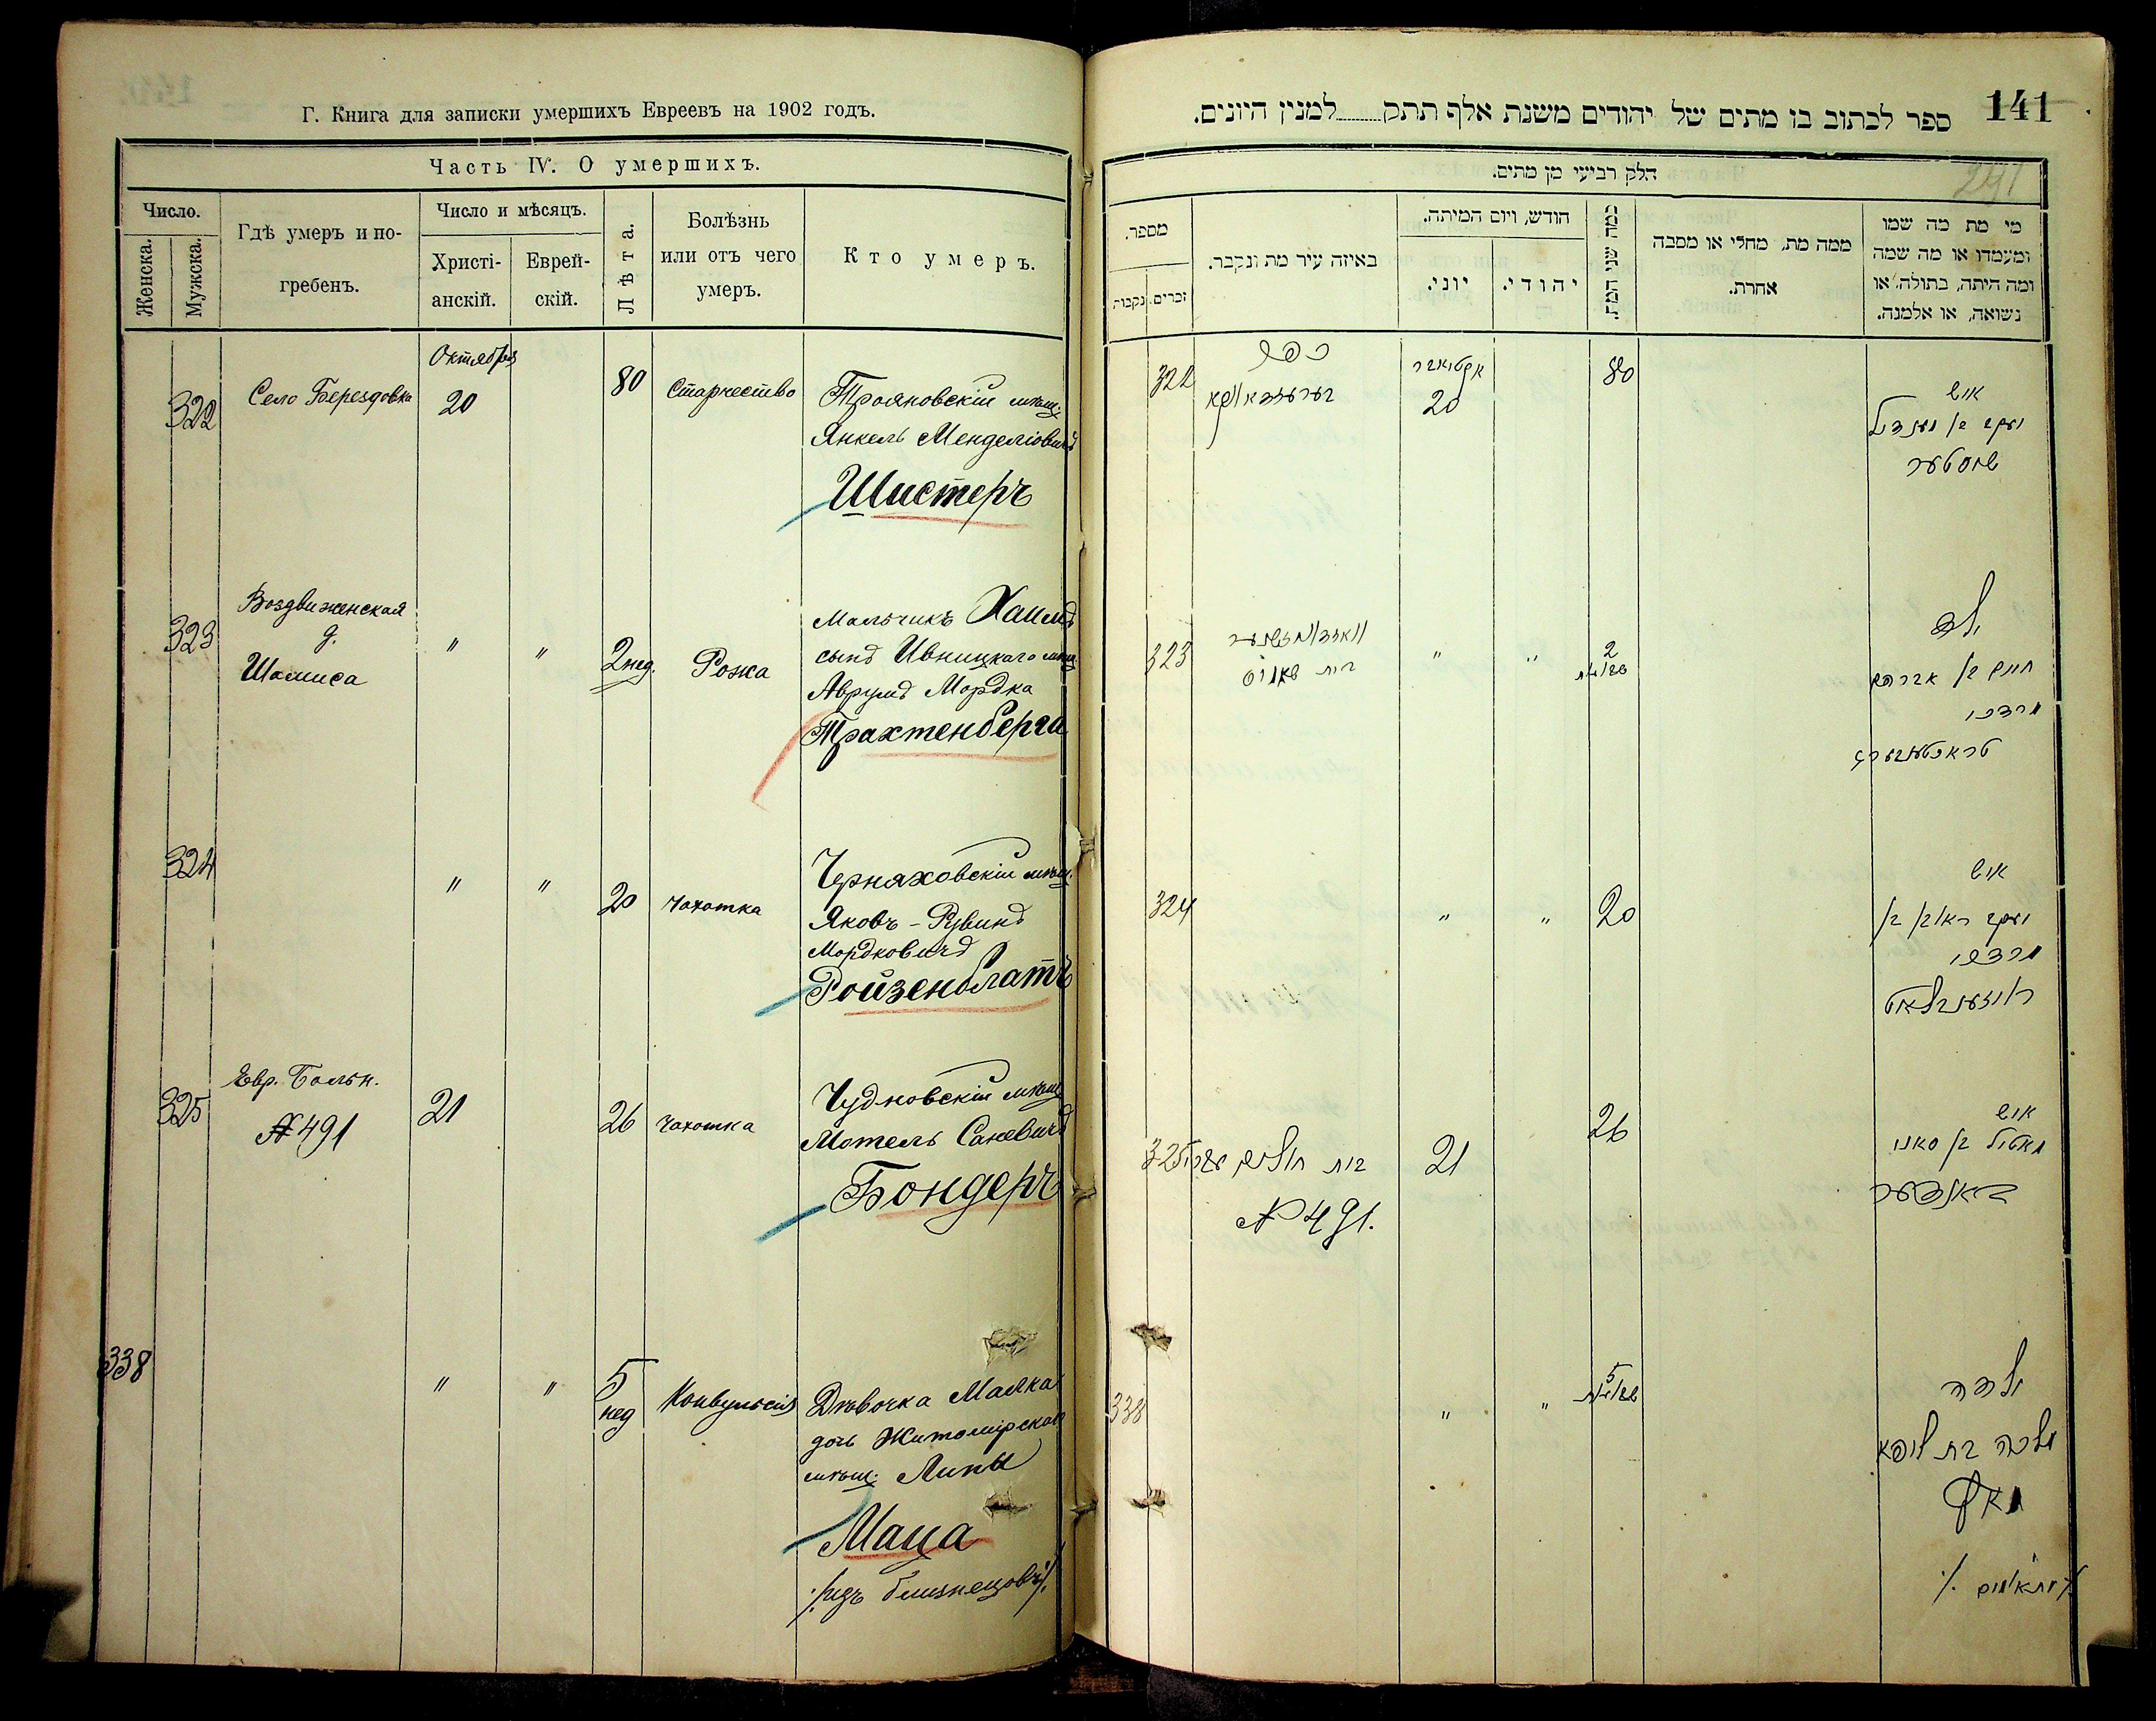 Г. Книга для записки умершихъ Евреевъ на 1902 годъ.
Часть IV. О умершихъ.
Число.
Женска.
Мужска.
Гдѣ умеръ и по-
гребенъ.
Число и мѣсяцъ.
Христі-
анскій.
Еврей-
скій.
Лѣта.
Болѣзнь
или отъ чего
умеръ.
Кто умеръ.
Октября
322
Село Берездовка
20
80
Старчество
Трояновскій мѣщ.
Янкель Менделіовичъ
Шистеръ
323
Воздвиженская
д.
Шамиса
"
"
2 нед.
Рожа
Мальчикъ Хаимъ
сынъ Ивницкаго мѣщ.
Аврумъ Мордка
Трахтенберга
324
"
"
20
Чахотка
Черняховскій мѣщ.
Яковъ-Рувинъ
Мордковичъ
Ройзенблатъ
325
Евр. Больн.
№ 491
21
26
Чахотка
Чудновскій мѣщ.
Мотель Саневичъ
Бондеръ
338
"
"
5
нед
Конвульсія
Дѣвочка Малка
дочь Житомірскаго
мѣщ. Липы
Маца
./. изъ близнецовъ ./.
141
ספר לכתוב בו מתים של יהודים משנת אלף תתק למנין היונים.
241
חלק רביעי מן מתים.
מספר.
נקבות
זכרים.
באיזה עיר מת ונקבר.
חודש, ויום המיתה.
יוני.
יהודי.
כמה שני המת.
ממה מת, מחלי או מסבה
אחרת.
מי מת מה שמו
ומעמדו או מה שמה
ומה היתה, בתולה, או
נשואה, או אלמנה.
322
כפר
אקטאבר
20
80
איש
יעקב בן מענדיל
שוסטער
323
בית שאמיס
"
"
2
שבועות
ילד
חיים בן אברהם
מרדכי
טראכטענבערג
324
"
"
20
איש
יעקב ראובן בן
מרדכי
רויזענבלאט
325
בית חולים עברי
№ 491.
21
26
איש
מאטיל בן סאני
באנדער
338
"
"
5
שבועות
ילדה
מלכה בת ליפא
מאצע
./. מתאומים ./.